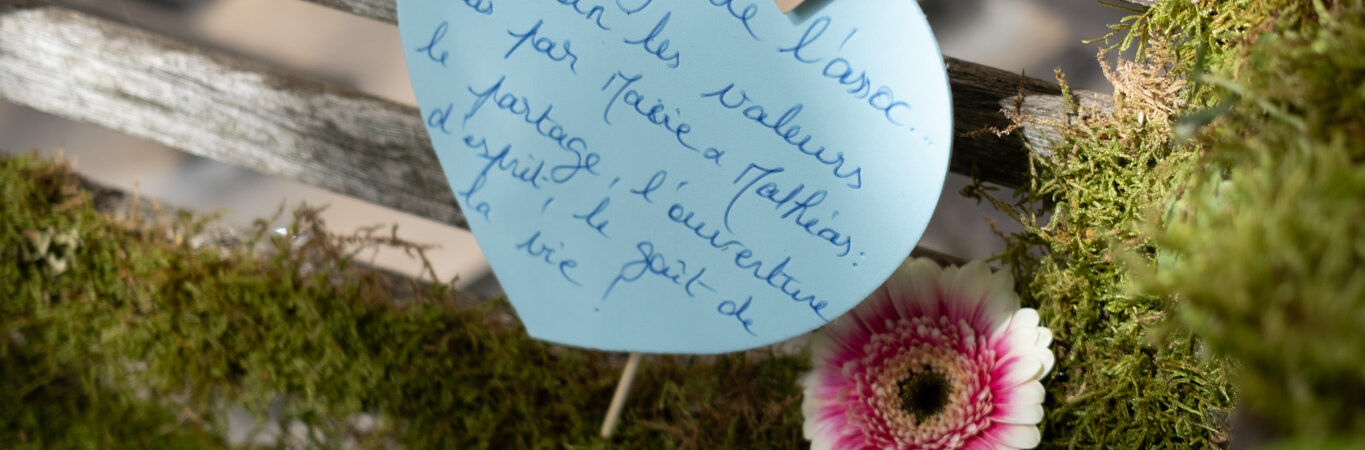 de l'assoc...
les valeurs
par Marie & Mathias:
le partage, l'ouverture
d'esprit, le goût de
la vie !